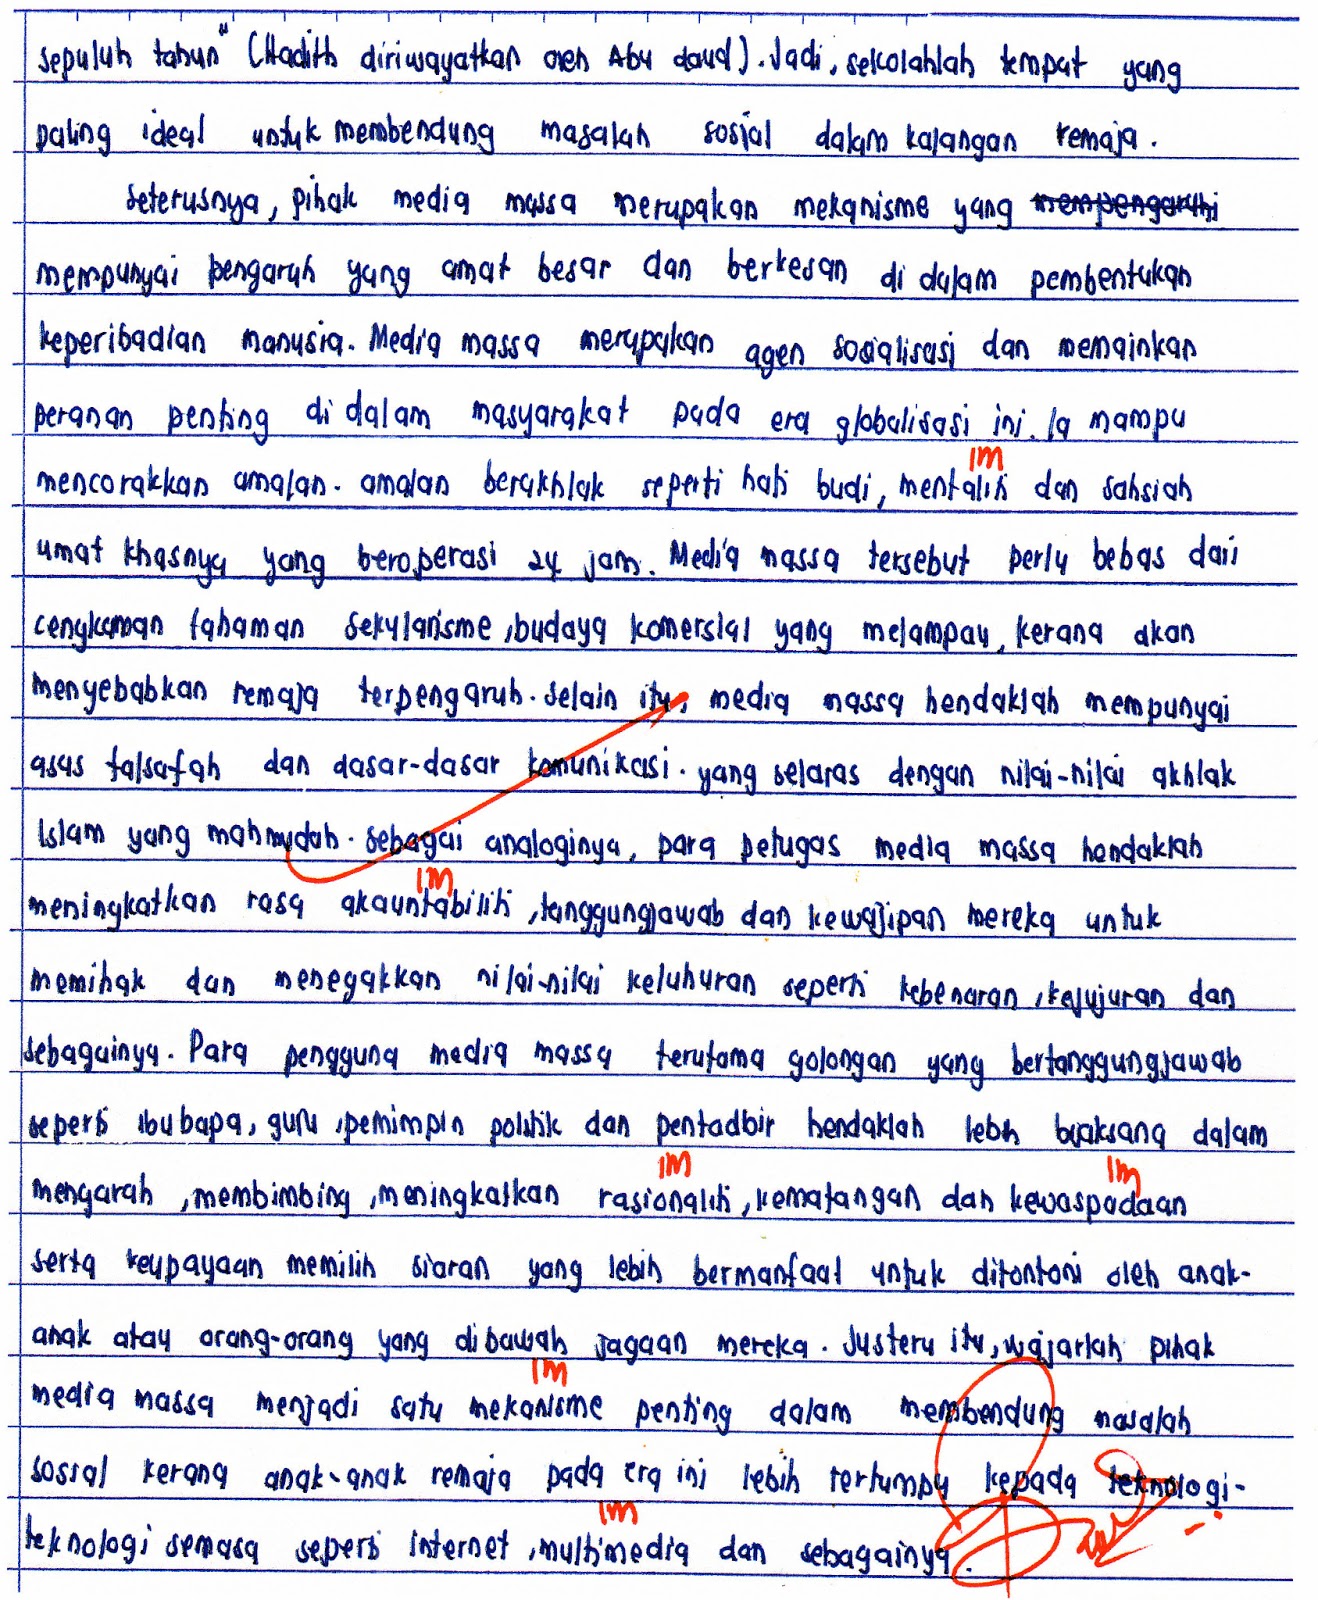 sepuluh tahun" (Hadith diriwayatkan oleh Abu daud). Jadi, sekolahlah tempat yang
paling ideal untuk membendung masalah sosial dalam kalangan remaja.
Seterusnya, pihak media massa merupakan mekanisme yang mempengaruhi
mempunyai pengaruh yang amat besar dan berkesan di dalam pembentukan
keperibadian manusia. Media massa merupakan agen sosialisasi dan memainkan
peranan penting di dalam masyarakat pada era globalisasi ini. Ia mampu
1M
mencorakkan amalan-amalan berakhlak seperti hati budi, mentaliti dan sahsiah
umat khasnya yang beroperasi 24 jam. Media massa tersebut perlu bebas dari
cengkaman fahaman sekularisme, budaya komersial yang melampau, kerana akan
menyebabkan remaja terpengaruh. Selain itu, media massa hendaklah mempunyai
asas falsafah dan dasar-dasar komunikasi. yang selaras dengan nilai-nilai akhlak
Islam yang mahmudah. Sebagai analoginya, para petugas media massa hendaklah
1M
meningkatkan rasa akauntabiliti, tanggungjawab dan kewajipan mereka untuk
memihak dan menegakkan nilai-nilai keluhuran seperti kebenaran, kejujuran dan
sebagainya. Para pengguna media massa terutama golongan yang bertanggungjawab
seperti ibu bapa, guru, pemimpin politik dan pentadbir hendaklah lebih bijaksana dalam
1M 1M
mengarah, membimbing, meningkatkan rasionaliti, kematangan dan kewaspadaan
serta keupayaan memilih siaran yang lebih bermanfaat untuk ditontoni oleh anak-
anak atau orang-orang yang dibawah jagaan mereka. Justeru itu, wajarlah pihak
1M
media massa menjadi satu mekanisme penting dalam membendung masalah
sosial kerana anak-anak remaja pada era ini lebih tertumpu kepada teknologi-
1M
teknologi semasa seperti internet, multimedia dan sebagainya.